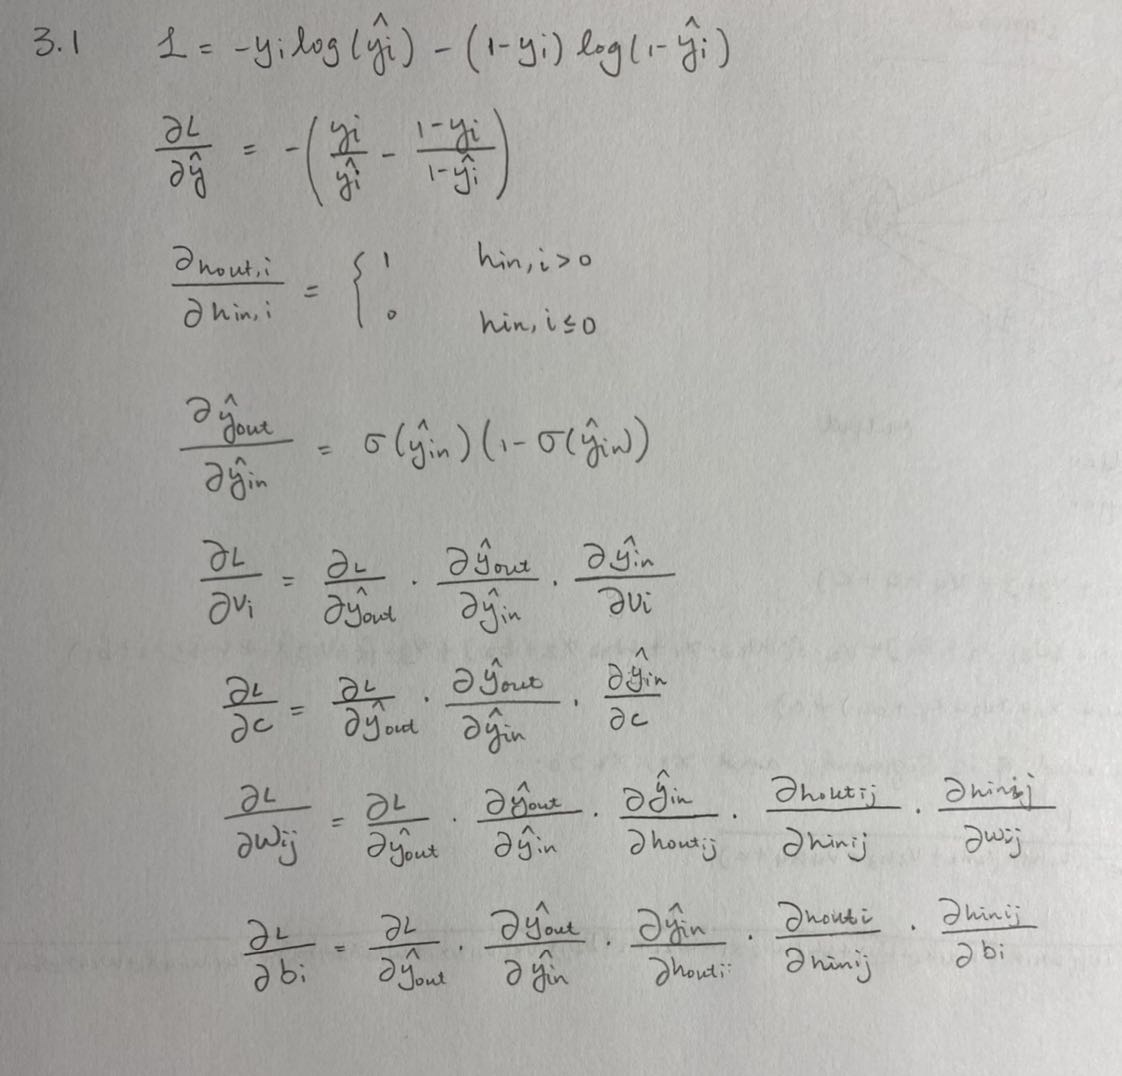 3.1 L = -yi log(ŷi) - (1-yi) log(1-ŷi)
∂L/∂ŷ = -(yi/ŷi - (1-yi)/(1-ŷi))
∂hout,i/∂hin,i = { 1 hin,i > 0
0 hin,i ≤ 0
∂ŷout/∂ŷin = σ(ŷin)(1-σ(ŷin))
∂L/∂vi = ∂L/∂ŷout · ∂ŷout/∂ŷin · ∂ŷin/∂vi
∂L/∂c = ∂L/∂ŷout · ∂ŷout/∂ŷin · ∂ŷin/∂c
∂L/∂wij = ∂L/∂ŷout · ∂ŷout/∂ŷin · ∂ŷin/∂houtij · ∂houtij/∂hinij · ∂hinij/∂wij
∂L/∂bi = ∂L/∂ŷout · ∂ŷout/∂ŷin · ∂ŷin/∂houtij · ∂houti/∂hinij · ∂hinij/∂bi